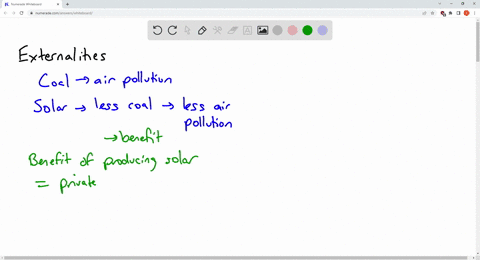 Externalities
Coal → air pollution
Solar → less coal → less air
pollution
→ benefit
Benefit of producing solar
= private